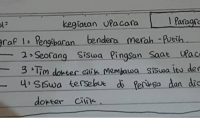 kegiatan upacara
1 Paragra
graf 1: Pengibaran bendera merah-Putih
2. Seorang Siswa Pingsan Saat upac
3. Tim dokter cilik Membawa siswa itu de
4. Siswa tersebut di Periksa dan di
dokter Cilik.